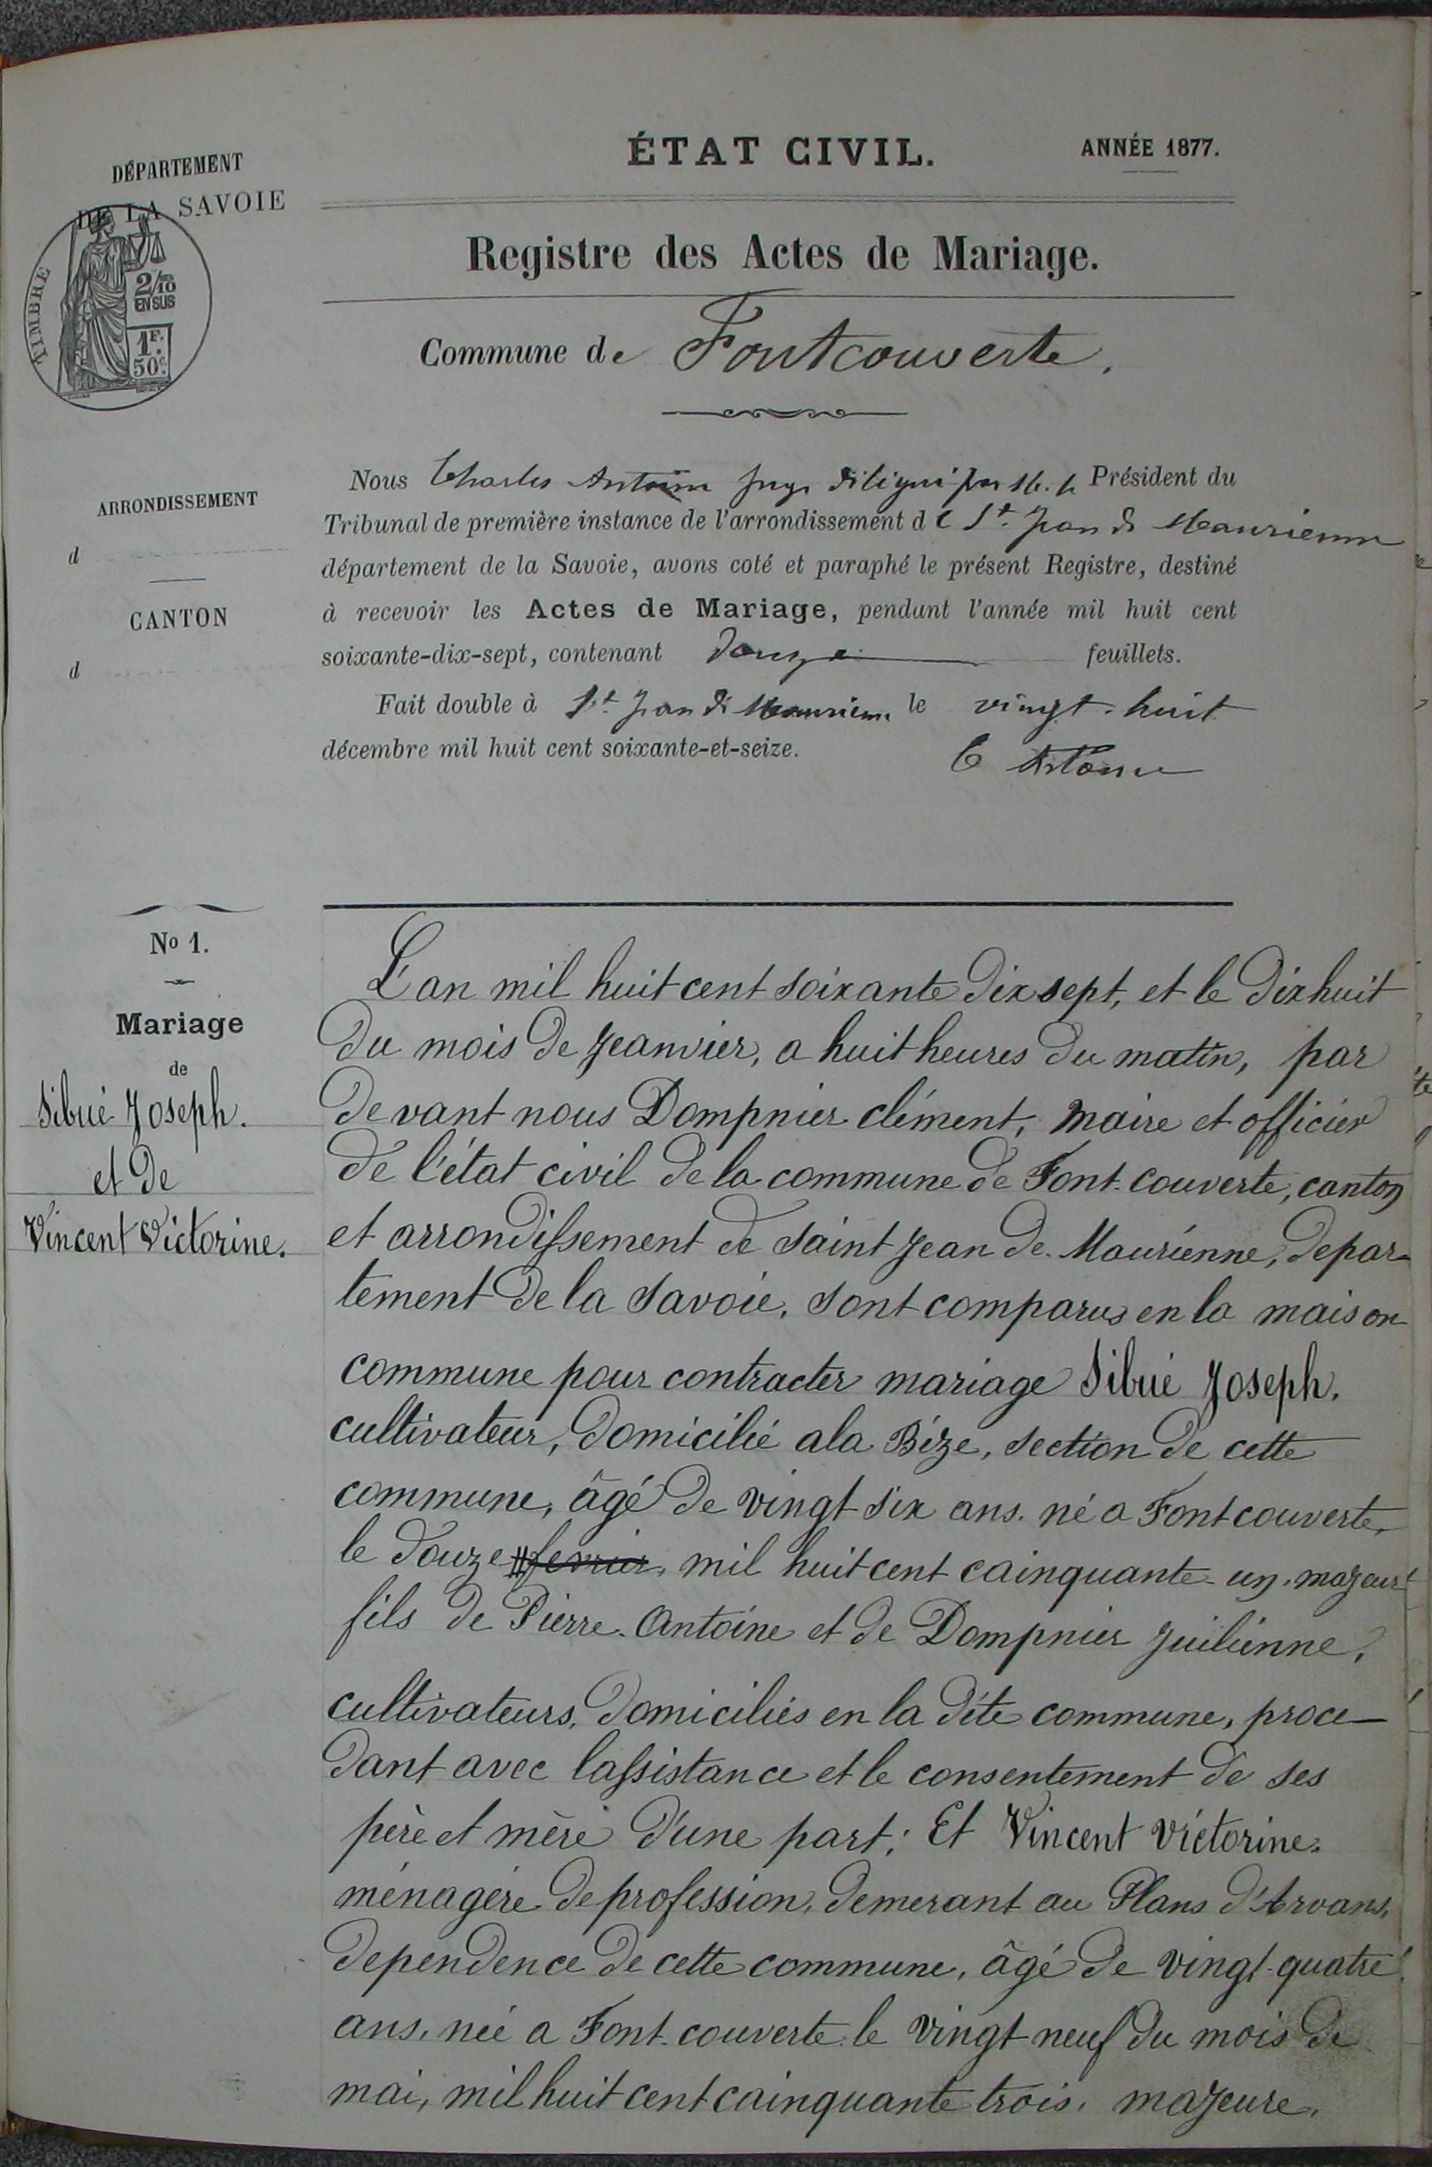 ÉTAT CIVIL.
ANNÉE 1877.
DÉPARTEMENT
DE LA SAVOIE
TIMBRE
2/10
EN SUS
1F.
50c
Registre des Actes de Mariage.
Commune de Fontcouverte.
ARRONDISSEMENT
d
CANTON
d
Nous Charles Antoine juge délégué par M. le Président du
Tribunal de première instance de l'arrondissement de St. Jean de Maurienne
département de la Savoie, avons coté et paraphé le présent Registre, destiné
à recevoir les Actes de Mariage, pendant l'année mil huit cent
soixante-dix-sept, contenant douze feuillets.
Fait double à St Jean de Maurienne le vingt-huit
décembre mil huit cent soixante-et-seize.
C Antoine
No 1.
Mariage
de
Sibué Joseph.
et de
Vincent Victorine.
L'an mil huit cent soixante dix sept, et le dix huit
du mois de Jeanvier, a huit heures du matin, par
devant nous Dompnier clément, maire et officier
de l'état civil de la commune de Font-couverte, canton
et arrondissement de saint Jean de Maurienne, depar-
tement de la Savoie, sont comparus en la maison
commune pour contracter mariage Sibué Joseph.
cultivateur, domicilié a la Bize, section de cette
commune, âgé de vingt six ans. né a Fontcouverte,
le douze # fevrier, mil huit cent cainquante un. majeur
fils de Pierre Antoine et de Dompnier Juilienne,
cultivateurs, domiciliés en la dite commune, proce-
dant avec lassistance et le consentement de ses
père et mère d'une part; Et Vincent Victorine.
ménagère de profession, demerant au Plans d'Arvans,
dependence de cette commune, âgé de vingt-quatre
ans, née a Font-couverte le vingt neuf du mois de
mai, mil huit cent cainquante trois. majeure.